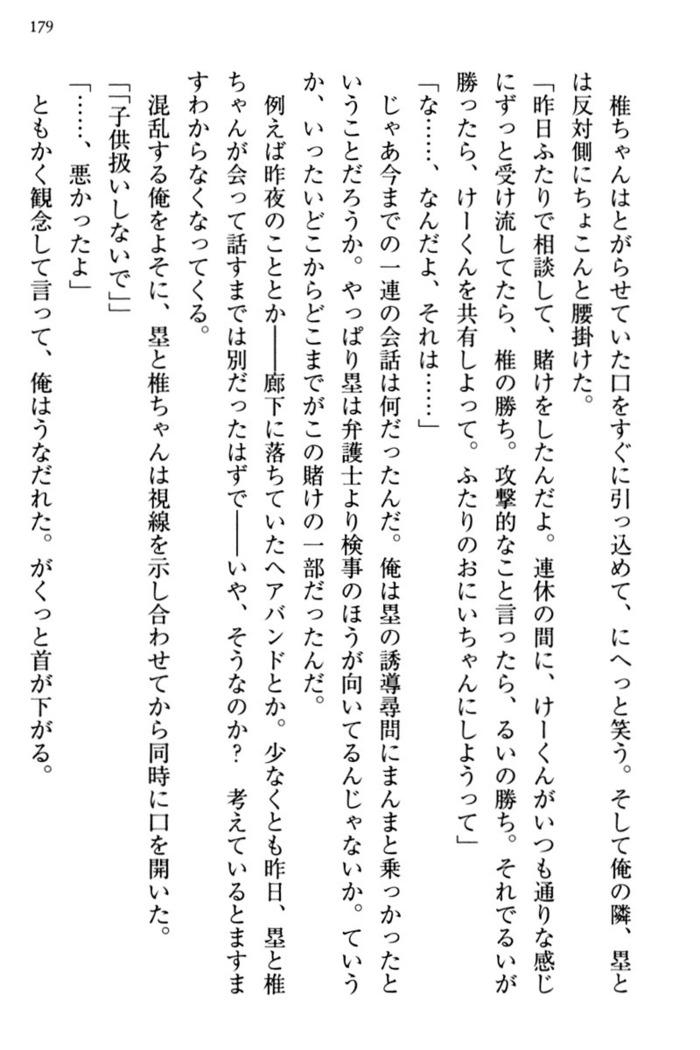 179
　椎ちゃんはとがらせていた口をすぐに引っ込めて、にへっと笑う。そして俺の隣、塁と
は反対側にちょこんと腰掛けた。
「昨日ふたりで相談して、賭けをしたんだよ。連休の間に、けーくんがいつも通りな感じ
にずっと受け流してたら、椎の勝ち。攻撃的なこと言ったら、るいの勝ち。それでるいが
勝ったら、けーくんを共有しよって。ふたりのおにいちゃんにしようって」
「な……、なんだよ、それは……」
　じゃあ今までの一連の会話は何だったんだ。俺は塁の誘導尋問にまんまと乗っかったと
いうことだろうか。やっぱり塁は弁護士より検事のほうが向いてるんじゃないか。ていう
か、いったいどこからどこまでがこの賭けの一部だったんだ。
　例えば昨夜のこととか――廊下に落ちていたヘアバンドとか。少なくとも昨日、塁と椎
ちゃんが会って話すまでは別だったはずで――いや、そうなのか？　考えているとますま
すわからなくなってくる。
　混乱する俺をよそに、塁と椎ちゃんは視線を示し合わせてから同時に口を開いた。
「「子供扱いしないで」」
「……、悪かったよ」
　ともかく観念して言って、俺はうなだれた。がくっと首が下がる。